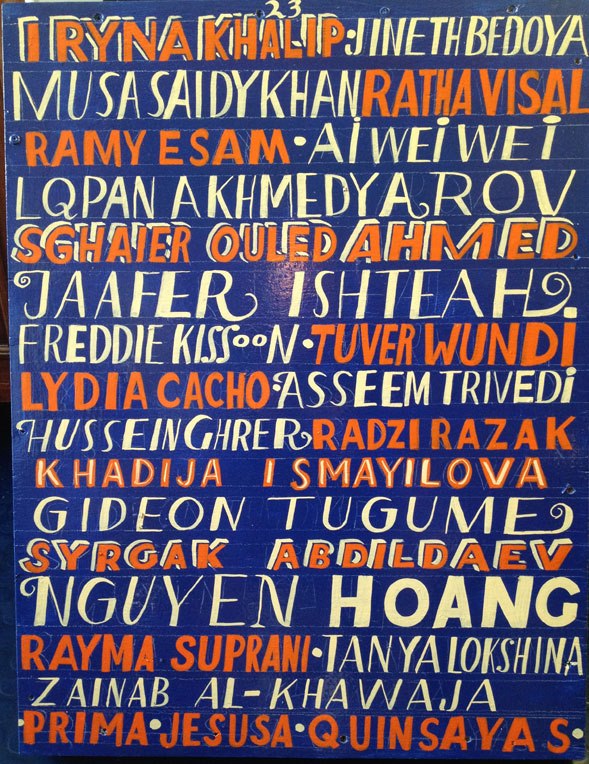 23
IRYNA KHALIP·JINETH BEDOYA
MUSA SAIDYKHAN RATHA VISAL
RAMY ESAM·Ai WEiWEi
LQPAN AKHMEDYAROV
SGHAIER OULED AHMED
JAAFER ISHTEAH.
FREDDIE KISSOON·TUVER WUNDi
LYDIA CACHO·ASSEEM TRIVEDi
HUSSEIN GHRER RADZI RAZAK
KHADIJA ISMAYILOVA
GIDEON TUGUME
SYRGAK ABDILDAEV
NGUYEN HOANG
RAYMA SUPRANI·TANYA LOKSHINA
ZAINAB AL-KHAWAJA
·PRIMA·JESUSA·QUINSAYAS·